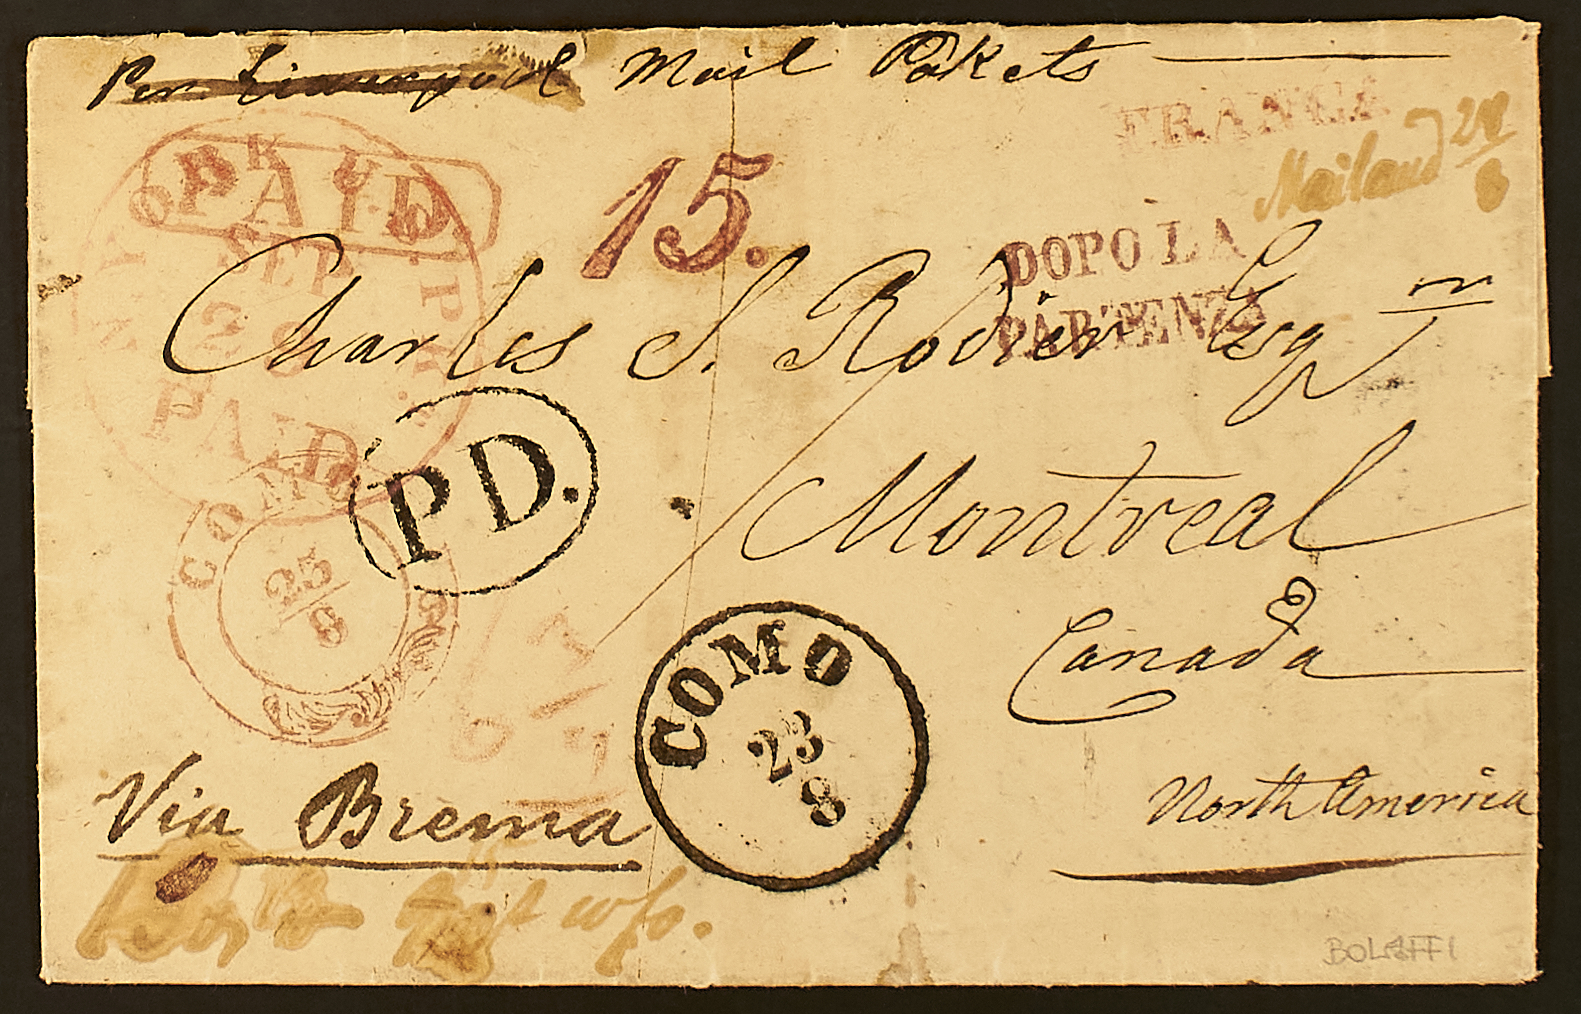 Per Liverpool Mail Pakets
FRANCA
Mailand 28/8
PAID
N. YORK BR. PKT.
SEP
28
PAID
15.
DOPO LA
PARTENZA
Charles S. Rodier Esqr
Montreal
Canada
North America
P.D.
COMO
23
8
COMO
23
8
Via Brema
BOLAFFI